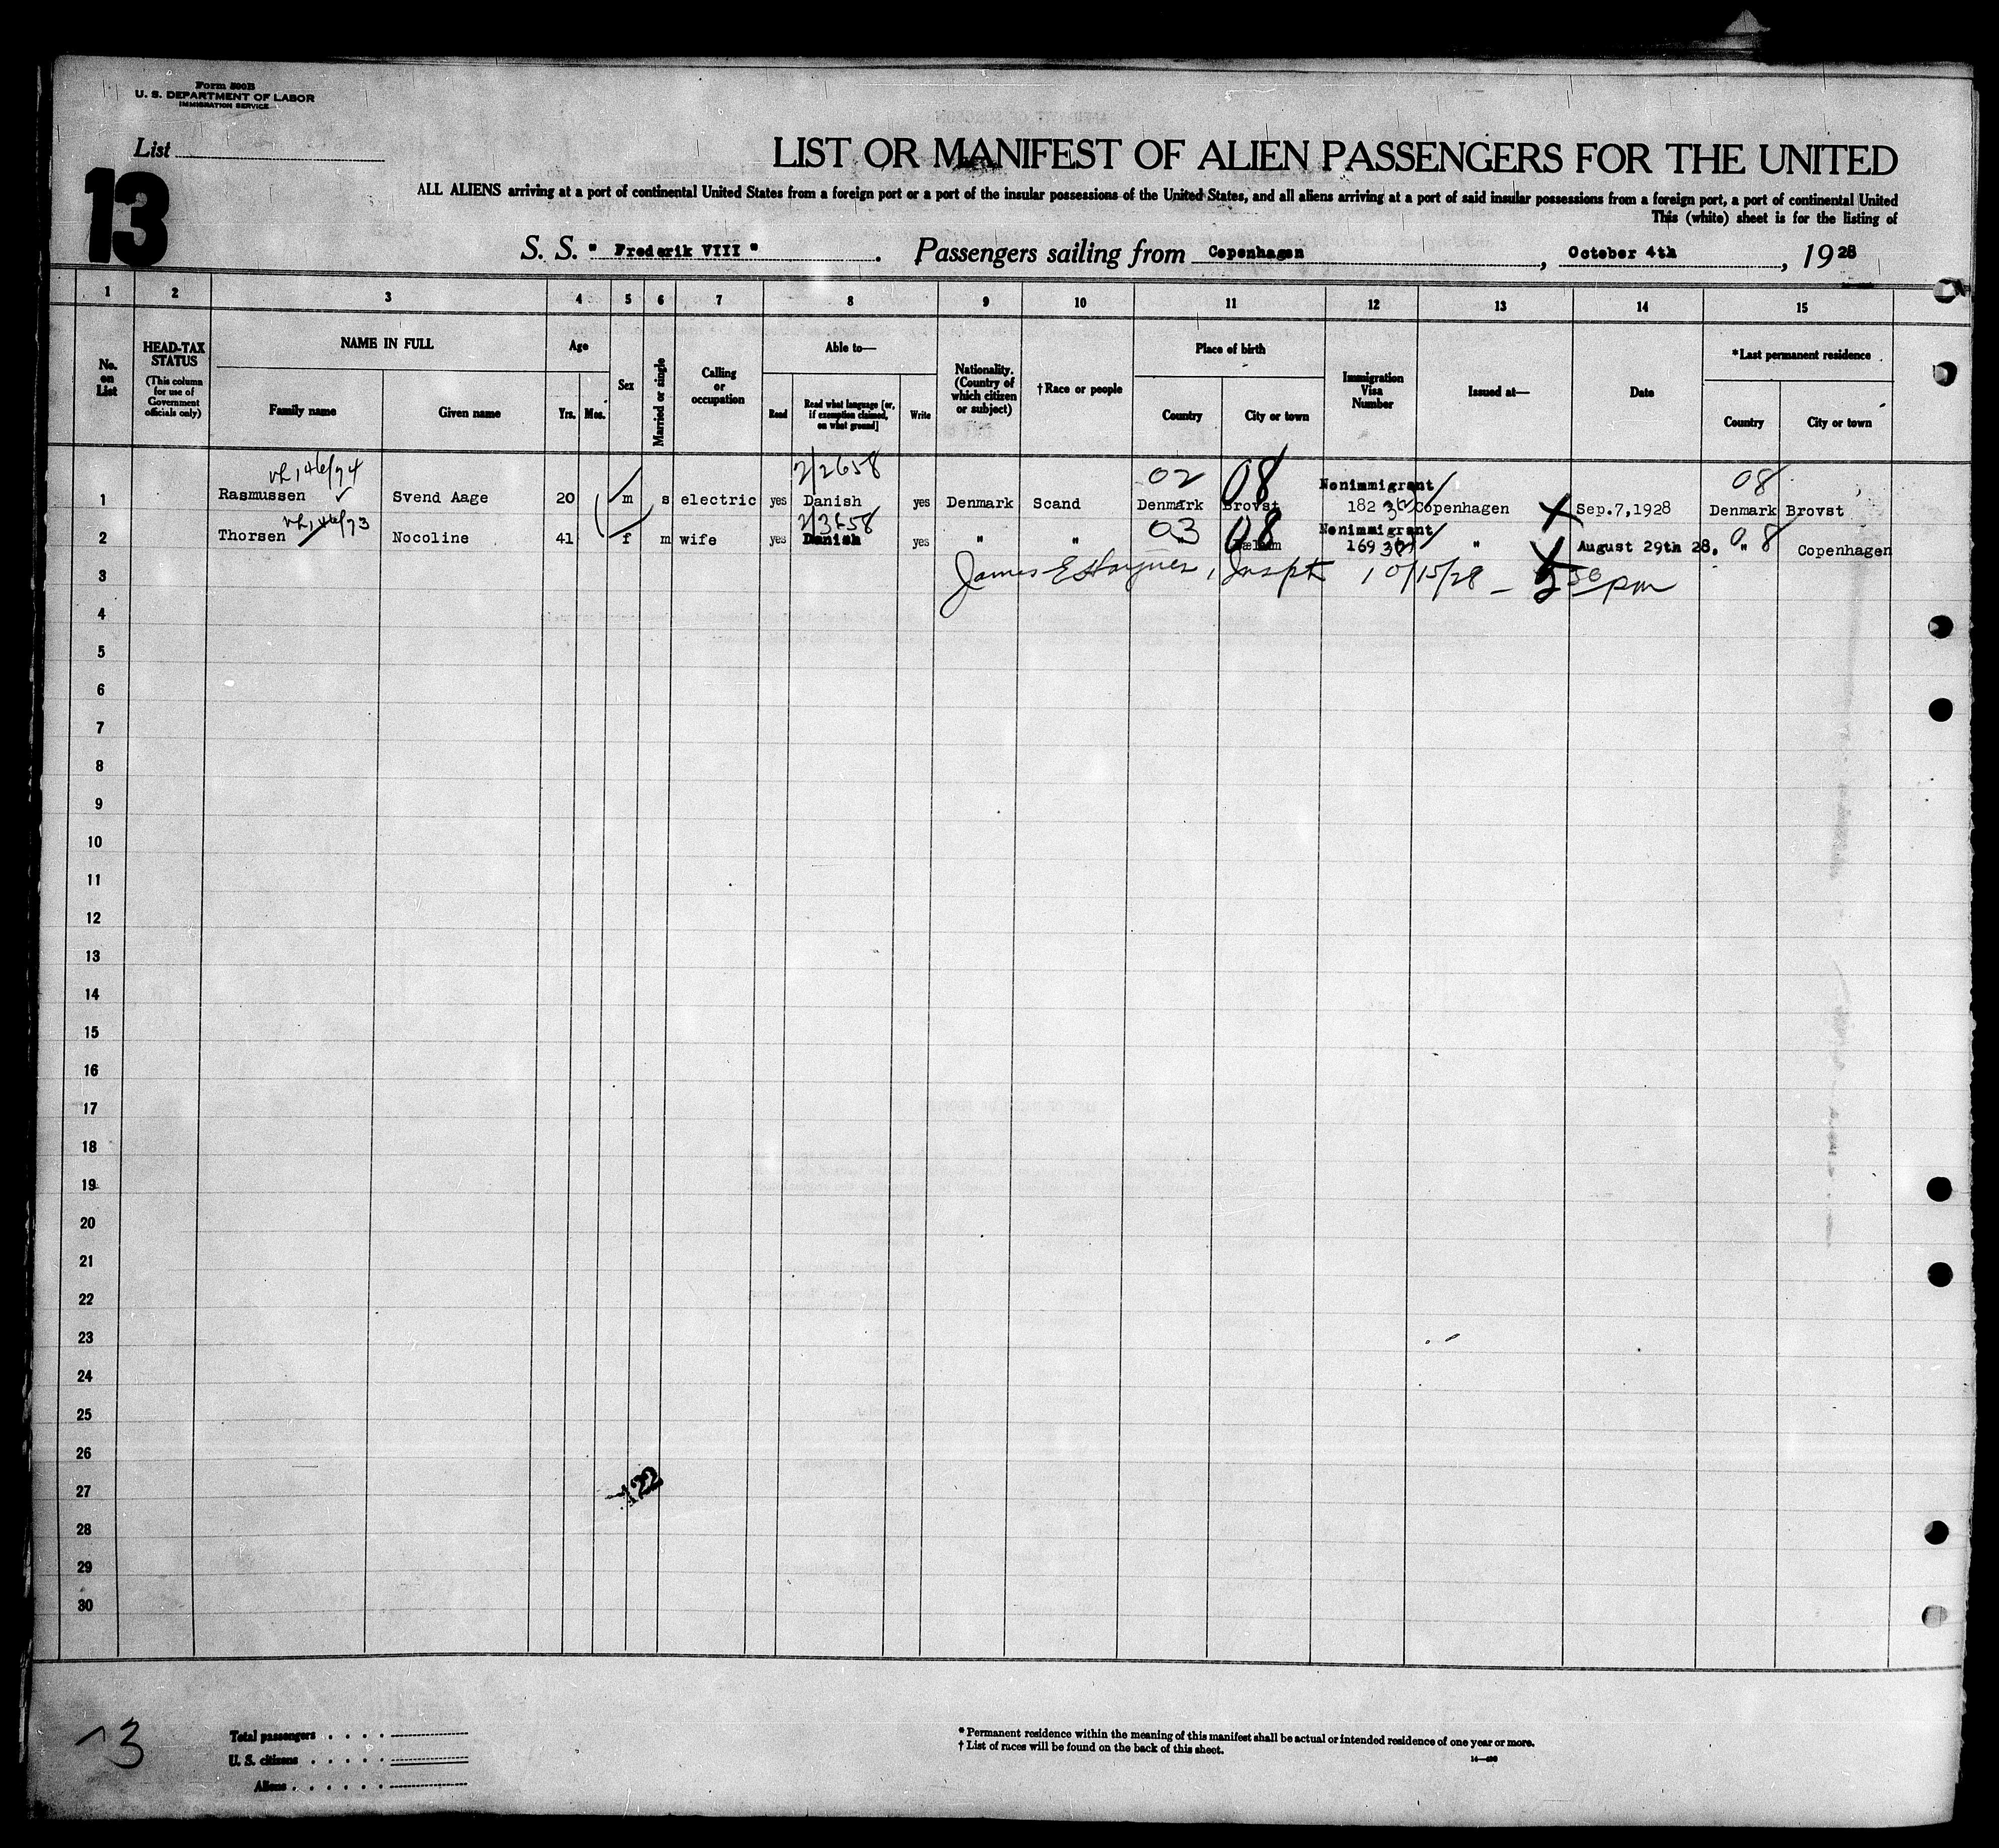 Form 500B
U. S. DEPARTMENT OF LABOR
IMMIGRATION SERVICE
List
13
LIST OR MANIFEST OF ALIEN PASSENGERS FOR THE UNITED
ALL ALIENS arriving at a port of continental United States from a foreign port or a port of the insular possessions of the United States, and all aliens arriving at a port of said insular possessions from a foreign port, a port of continental United
This (white) sheet is for the listing of
S. S. " Frederik VIII " . Passengers sailing from Copenhagen , October 4th , 1928
1 2 3 4 5 6 7 8 9 10 11 12 13 14 15
No. on List
HEAD-TAX STATUS
(This column for use of Government officials only)
NAME IN FULL
Family name
Given name
Age
Yrs.
Mos.
Sex
Married or single
Calling or occupation
Able to—
Read
Read what language [or, if exemption claimed, on what ground]
Write
Nationality. (Country of which citizen or subject)
†Race or people
Place of birth
Country
City or town
Immigration Visa Number
Issued at—
Date
*Last permanent residence
Country
City or town
2/2658 02 08 08
1 Rasmussen ✓ Svend Aage 20 m s electric yes Danish yes Denmark Scand Denmark Brovst Nonimmigrant 182 Copenhagen Sep.7,1928 Denmark Brovst
2/3658 03 08 08
2 Thorsen Nocoline 41 f m wife yes Danish yes " " Nonimmigrant 169 " August 29th 28, " Copenhagen
3 James E 10/15/28 — pm
4
5
6
7
8
9
10
11
12
13
14
15
16
17
18
19
20
21
22
23
24
25
26
27
122
28
29
30
13
Total passengers . . . .
U. S. citizens . . . . .
Aliens . . . . . .
* Permanent residence within the meaning of this manifest shall be actual or intended residence of one year or more.
† List of races will be found on the back of this sheet.